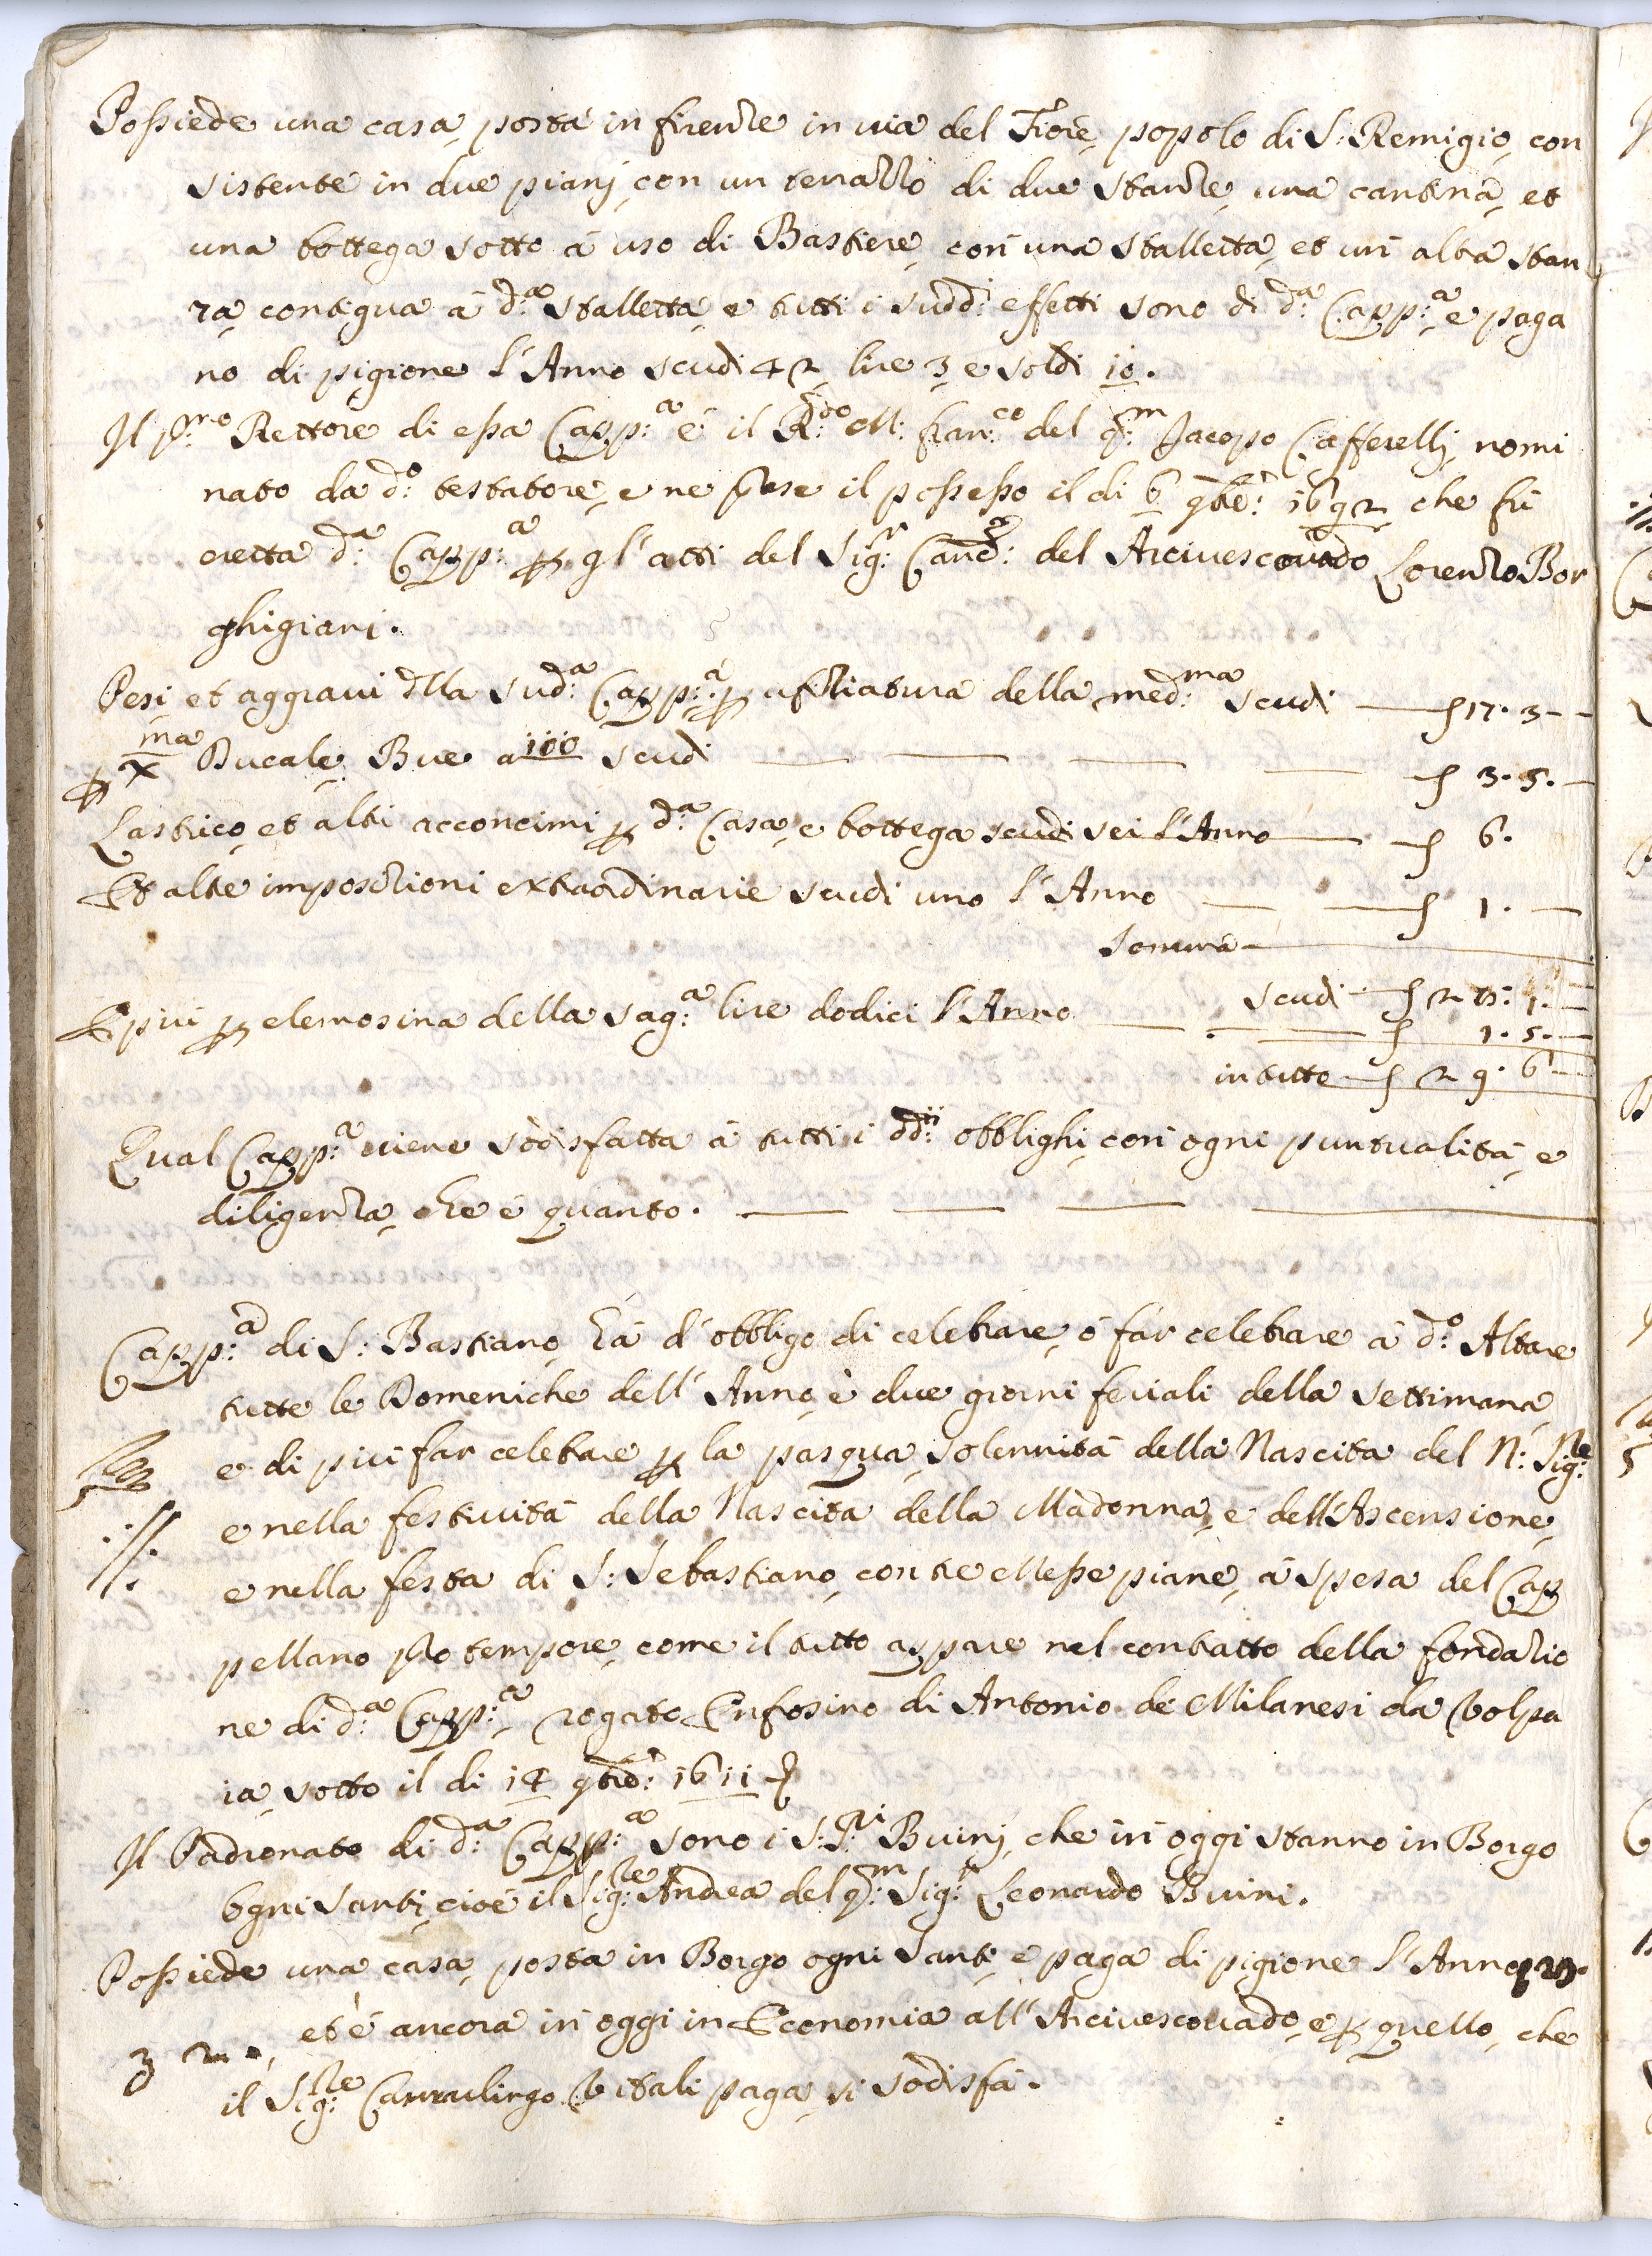 Possiede una casa, posta in firenze in via del Fiore, popolo di S: Remigio, con
sistente in due piani, con un terrazzo di due stanze, una cantina, et
una bottega sotto à uso di Bastiere, con una stalletta, et un' altra stan
za, contigua à d:ª stalletta, e tutti i sudd: effetti sono di d:ª Capp:ª e paga
no di pigione l'Anno scudi 42 lire 3 e soldi 10.
Il P:mo Rettore di essa Capp:ª è il R:do M: fran:co del q:m Jacopo Cafferelli, nomi
nato da d:o testatore, e ne prese il possesso il di 6 9bre: 1692 che fù
eretta d:ª Capp:ª p gl'atti del Sig:r Canc:re del Arcivescovado Lorenzo Bor
ghigiani.
Pesi et aggravi della Sud:ª Capp:ª p ufiziatura della med:ma scudi — 17. 3 —
p Xma Ducale, Bue a 100 scudi — 3. 5. —
Lastrico, et altri acconcimi p d:ª Casa, e bottega scudi sei l'Anno — 6.
Et altre impositioni extraordinarie scudi uno l'Anno — 1. —
Somma —
scudi — 28. 1. —
E più p elemosina della sag:ª lire dodici l'Anno — 1. 5. —
in tutto — 29. 6 —
Qual Capp:ª viene sodisfatta à tutti i dd:ii obblighi, con ogni puntualità, e
diligenza, che è quanto.
Capp:ª di S: Bastiano, hà d'obbligo di celebrare, ò far celebrare à d:o Altare
tutte le Domeniche dell'Anno, è due giorni feriali della settimana
e di più far celebrare p la pasqua, solennità della Nascita del N: Sig:re
e nella festività della Nascita della Madonna, e dell'Ascensione,
e nella festa di S: Sebastiano, con tre Messe piane, à spesa del Cap
pellano pro tempore, come il tutto appare nel contratto della fondatio
ne di d:ª Capp:ª rogato Enfrosino di Antonio de Milanesi da Volpa
ia, sotto il di 14 9bre: 1611
Il Padronato di d:ª Capp:ª sono i S:S:ri Buini, che in oggi stanno in Borgo
Ogni Santi, cioè il Sig:re Andrea del q:m Sig:r Leonardo Buini.
Possiede una casa, posta in Borgo ogni Santi, e paga di pigione l'Anno 29.
et è ancora in oggi in Economia all'Arcivescovado, e p quello, che
il Sig:re Vitali paga, si sodisfà.